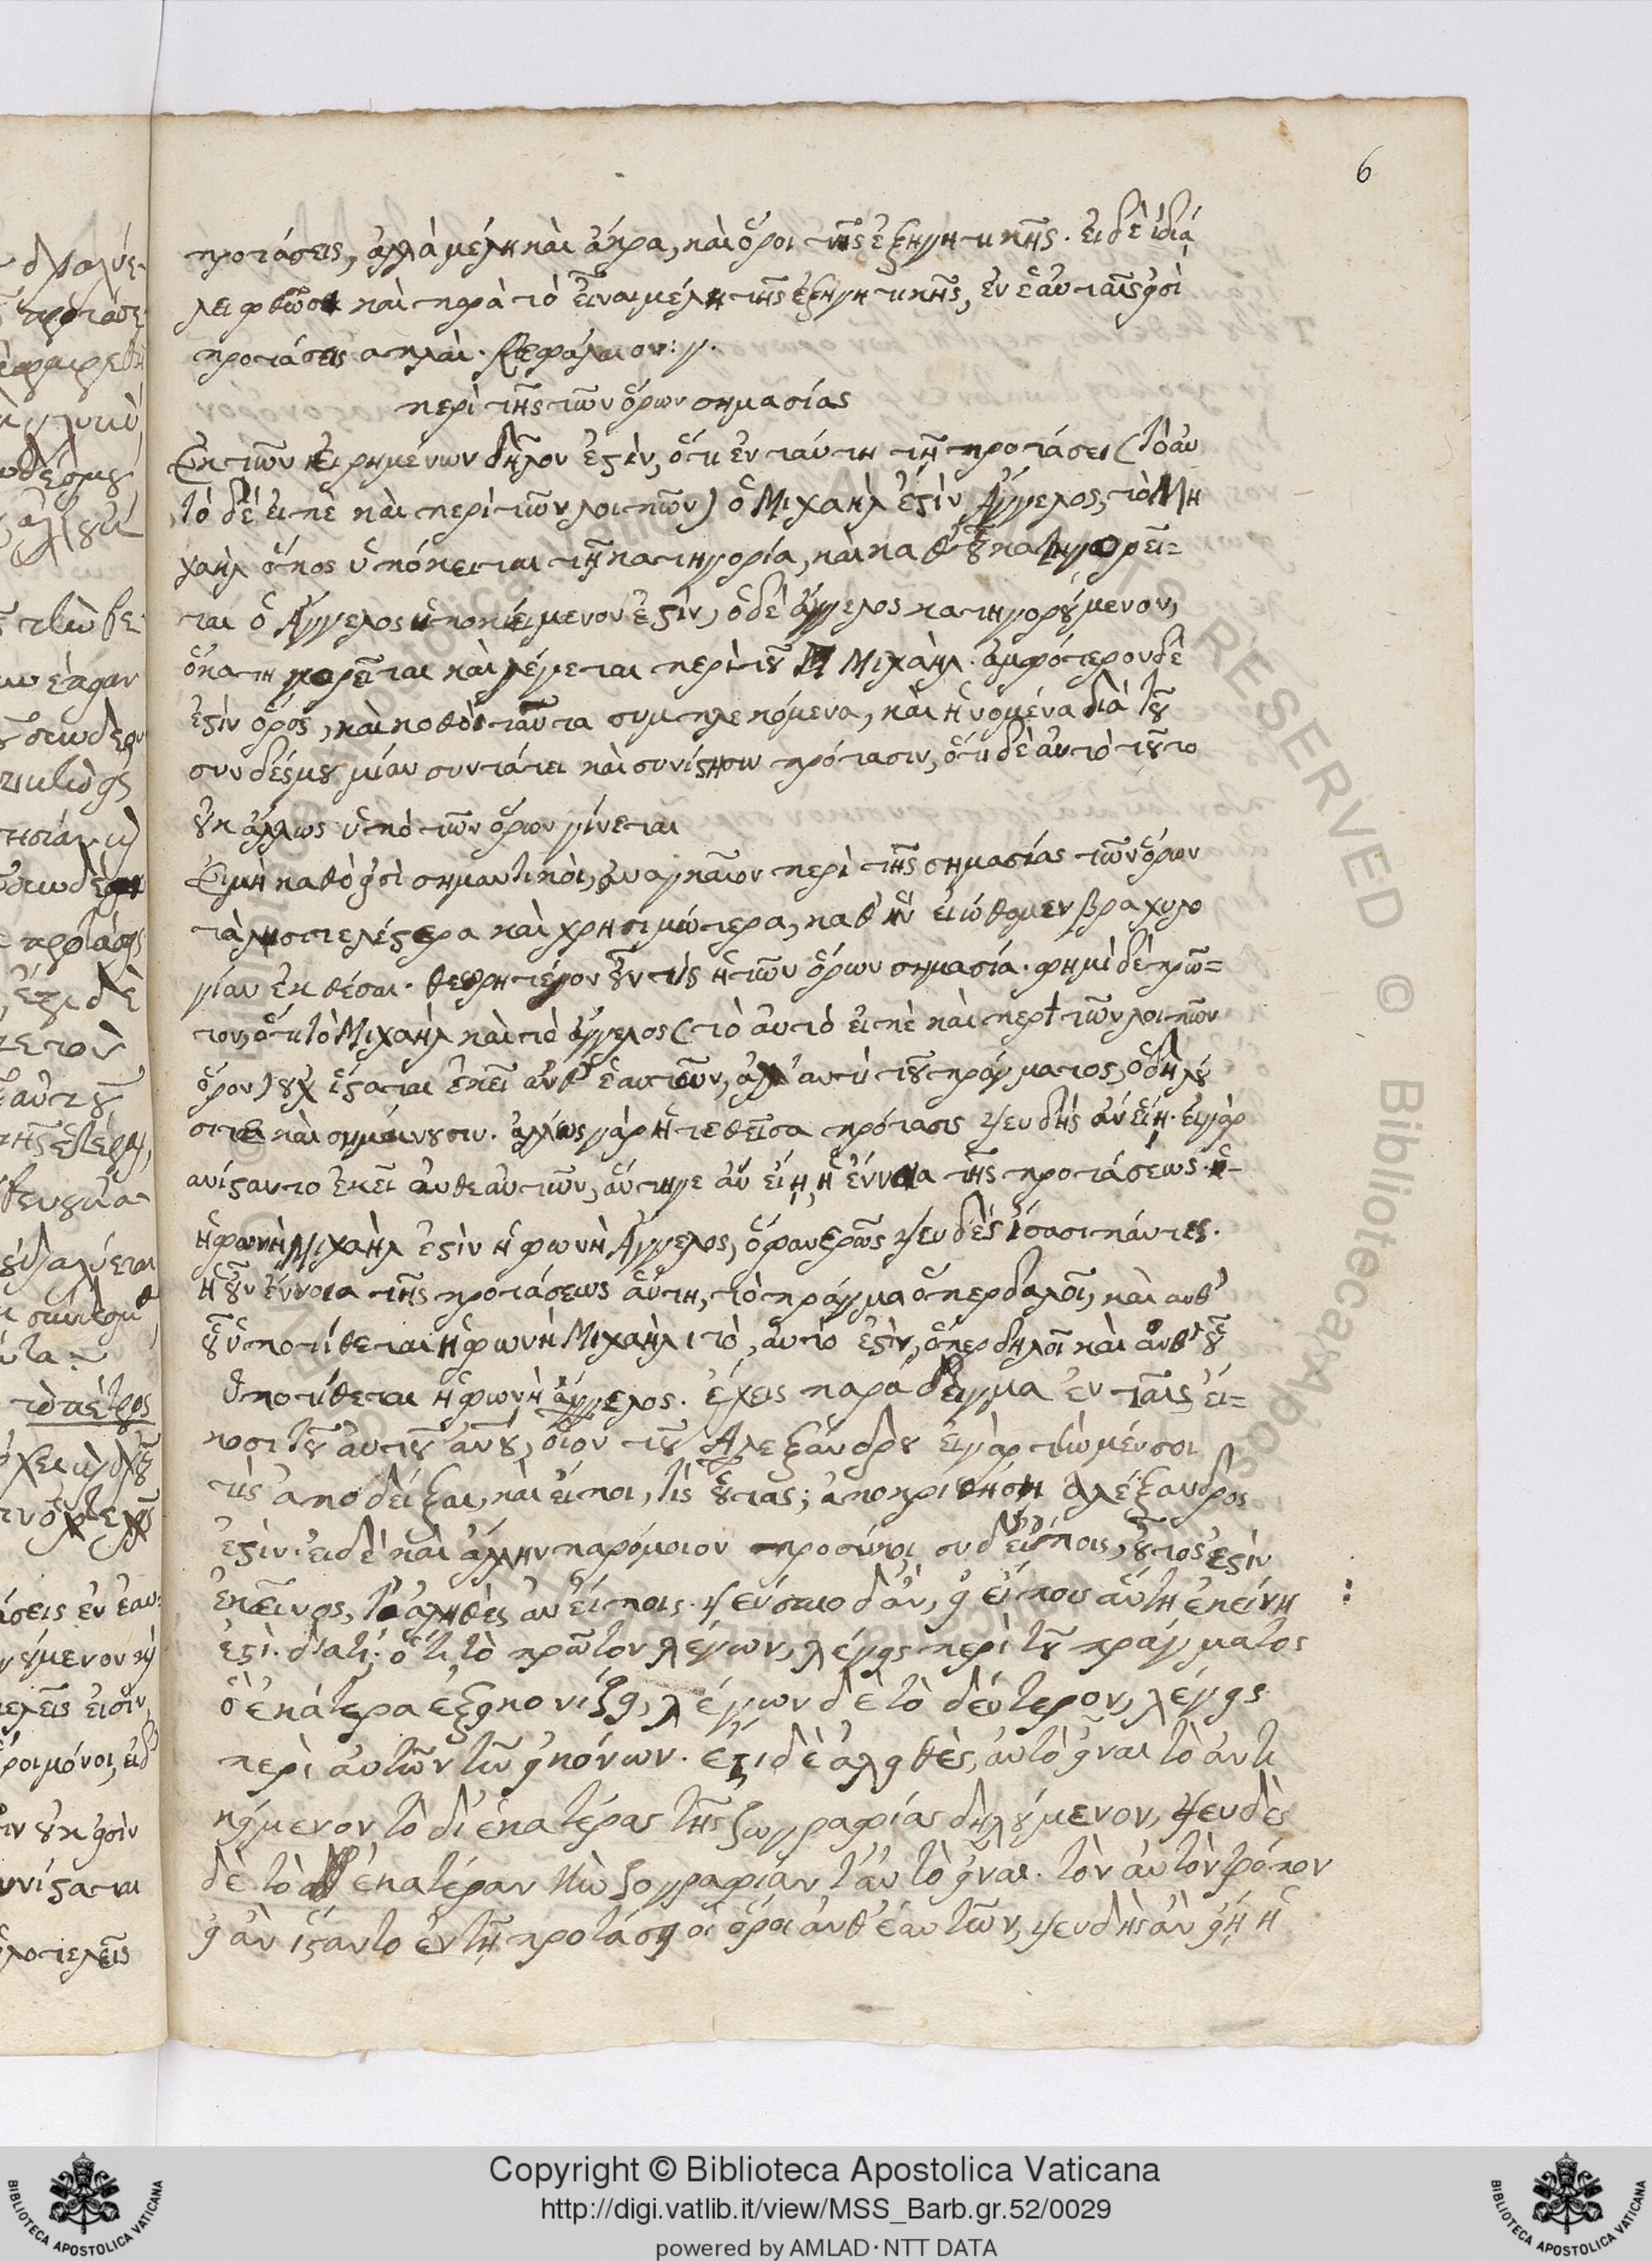 6
προτάσεις, ἀλλὰ μέλη καὶ ἄκρα, καὶ ὅροι τῆς ἐξηγητικῆς. εἰ δὲ ἰδίᾳ
λειφθῶσι καὶ παρὰ τὸ εἶναι μέλη τῆς ἐξηγητικῆς, ἐν ἑαυταῖς εἰσὶ
προτάσεις ἁπλαῖ. Κεφάλαιον: γ.
περὶ τῆς τῶν ὅρων σημασίας
Ἐκ τῶν εἰρημένων δῆλον ἐστὶν, ὅτι ἐν ταύτη τῇ προτάσει (τὸ αὐ
τὸ δὲ εἰπὲ καὶ περὶ τῶν λοιπῶν) ὁ Μιχαὴλ ἐστὶν Ἄγγελος, τὸ Μι
χαὴλ ὅπος ὑπόκειται τῇ κατηγορία, καὶ καθ' οὗ κατηγορεῖ=
ται ὁ Ἄγγελος ὑποκείμενον ἐστὶν, ὁ δὲ ἄγγελος κατηγορούμενον,
ὃ κατηγορεῖται καὶ λέγεται περὶ τοῦ Μιχαὴλ. ἀμφότερον δὲ
ἐστὶν ὅρος, καὶ καθὸ ταῦτα συμπλεκόμενα, καὶ ἡνομένα διὰ τοῦ
συνδέσμου μίαν συντάτει καὶ συνίστησιν πρότασιν, ὅτι δὲ αὐτὸ τοῦτο
οὐκ ἄλλως ὑπὸ τῶν ὅρων γίνεται
Εἰ μὴ καθὸ εἰσὶ σημαντικοὶ, ἀναγκαῖον περὶ τῆς σημασίας τῶν ὅρων
τὰ λυσιτελέστερα καὶ χρησιμώτερα, καθ' ἣν εἰώθαμεν βραχυλο
γίαν ἐκθέσαι. θεωρητέον οὖν τίς ἡ τῶν ὅρων σημασία. φημὶ δὲ πρῶ=
τον, ὅτι τὸ Μιχαὴλ καὶ τὸ ἄγγελος (τὸ αὐτὸ εἰπὲ καὶ περὶ τῶν λοιπῶν
ὅρον) οὐχ ἵσταται ἐκεῖ ἀνθ' ἑαυτῶν, ἀλλ' ἀντὶ τοῦ πράγματος, ὃ δηλοῦ
σι καὶ σημαίνουσιν. ἄλλως γὰρ ἡ τεθεῖσα πρότασις ψευδὴς ἂν εἴη. εἰ γὰρ
ἀνίσταντο ἐκεῖ ἀνθεαυτῶν, αὕτηγε ἂν εἴη ἡ ἔννοια τῆς προτάσεως. ἡ-
ἡ φωνὴ Μιχαὴλ ἐστὶν ἡ φωνὴ Ἄγγελος, ὃ φανερῶς ψευδὲς ἴσασι πάντες.
ἡ οὖν ἔννοια τῆς προτάσεως αὕτη, τὸ πράγμα ὅπερ δηλοῖ, καὶ ανθ'
οὗ ὑποτίθεται ἡ φωνὴ Μιχαὴλ, τὸ αὐτὸ ἐστὶν, ὅπερ δηλοῖ καὶ ἀνθ' οὗ
ὑποτίθεται ἡ φωνὴ ἄγγελος. ἔχεις παράδειγμα ἐν ταῖς εἰ=
κοσι τοῦ αὐτοῦ ἀνου, οἷον τοῦ Ἀλεξάνδρου εἰ γὰρ τὴν μέν σοι
τὶς ἀποδείξαι, καὶ εἴποι, τίς οὗτος; ἀποκριθήσῃ ἀλέξανδρος
ἐστὶν. εἰ δὲ καὶ ἄλλην παρόμοιον προσίησι, συ δ' εἴποις, οὗτος ἐστὶν
ἐκεῖνος, τὸ ἀληθὲς ἂν εἴποις. ψεύσαιο δ' ἂν, εἰ εἴποις αὕτη ἐκείνη
ἐστὶ. διατί; ὅτι τὸ πρῶτον λέγων, λέγεις περὶ τοῦ πράγματος
ὃ ἑκάτερα ἐξεικονίζει, λέγων δὲ τὸ δεύτερον, λέγεις
περὶ αὐτῶν τῶν εἰκόνων. ἔστι δὲ ἀληθὲς, αὐτὸ εἶναι τὸ ἀντι
κείμενον τὸ δι' ἑκατέρας τῆς ζωγραφίας δηλούμενον, ψευδὲς
δὲ τὸ ἑκατέραν τὴν ζογραφίαν ταὐτὸ εἶναι. τὸν αὐτὸν τρόπον
εἰ ἂν ἵσταντο ἐν τῇ προτάσει οἱ ὅροι ἀνθ' ἑαυτῶν, ψευδὴς ἂν εἴη ἡ
Copyright © Biblioteca Apostolica Vaticana
http://digi.vatlib.it/view/MSS_Barb.gr.52/0029
powered by AMLAD·NTT DATA